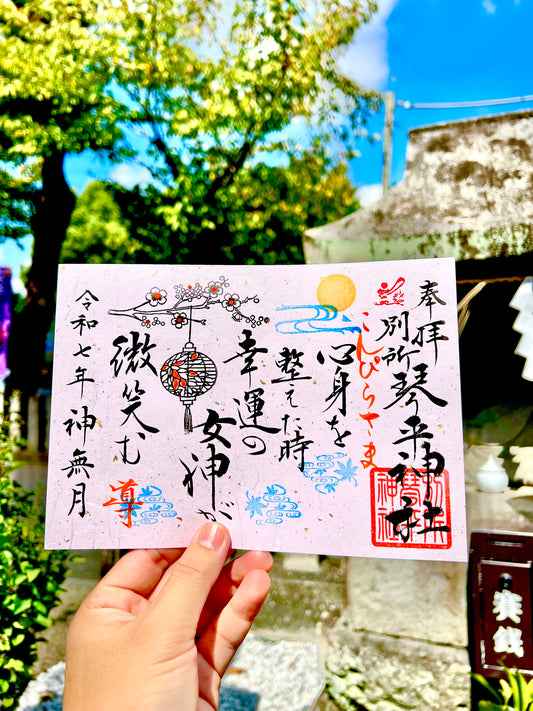 奉拝
別所琴平神社
こんぴらさま
心身を
整えた時
幸運の
女神が
微笑む
導
令和七年 神無月
賽銭